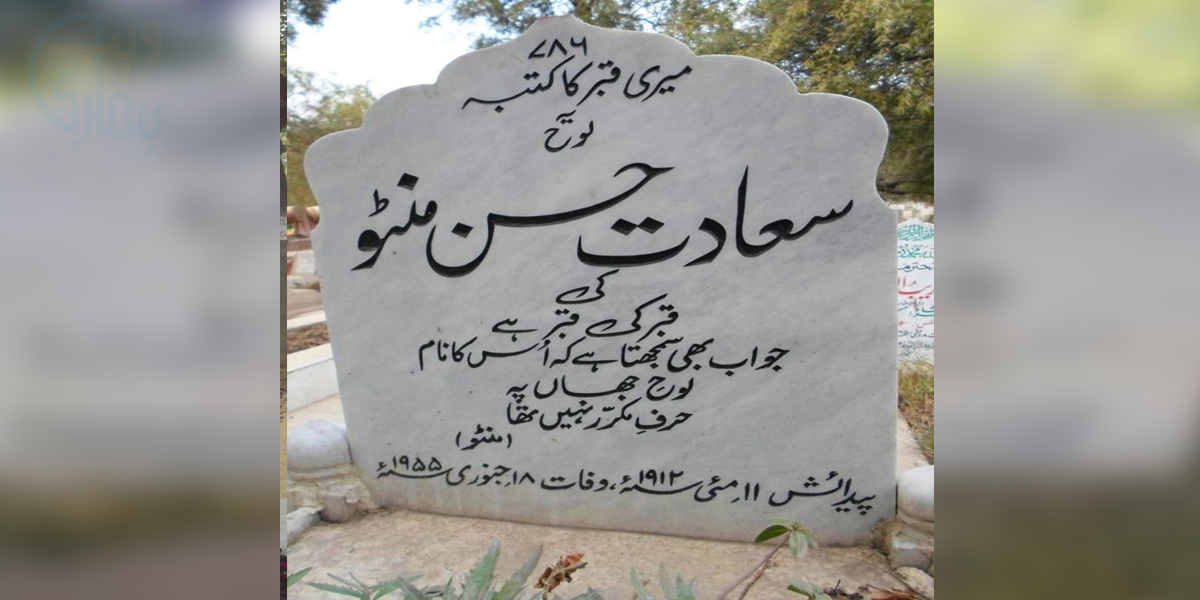 ۷۸۶
میری قبر کا کتبہ
لوح
سعادت حسن منٹو
کی
قبر کی قبر ہے
جو اب بھی سمجھتا ہے کہ اُس کا نام
لوحِ جہاں پہ
حرفِ مکرّر نہیں تھا
(منٹو)
پیدائش ۱۱ مئی ۱۹۱۲ء، وفات ۱۸ جنوری ۱۹۵۵ء